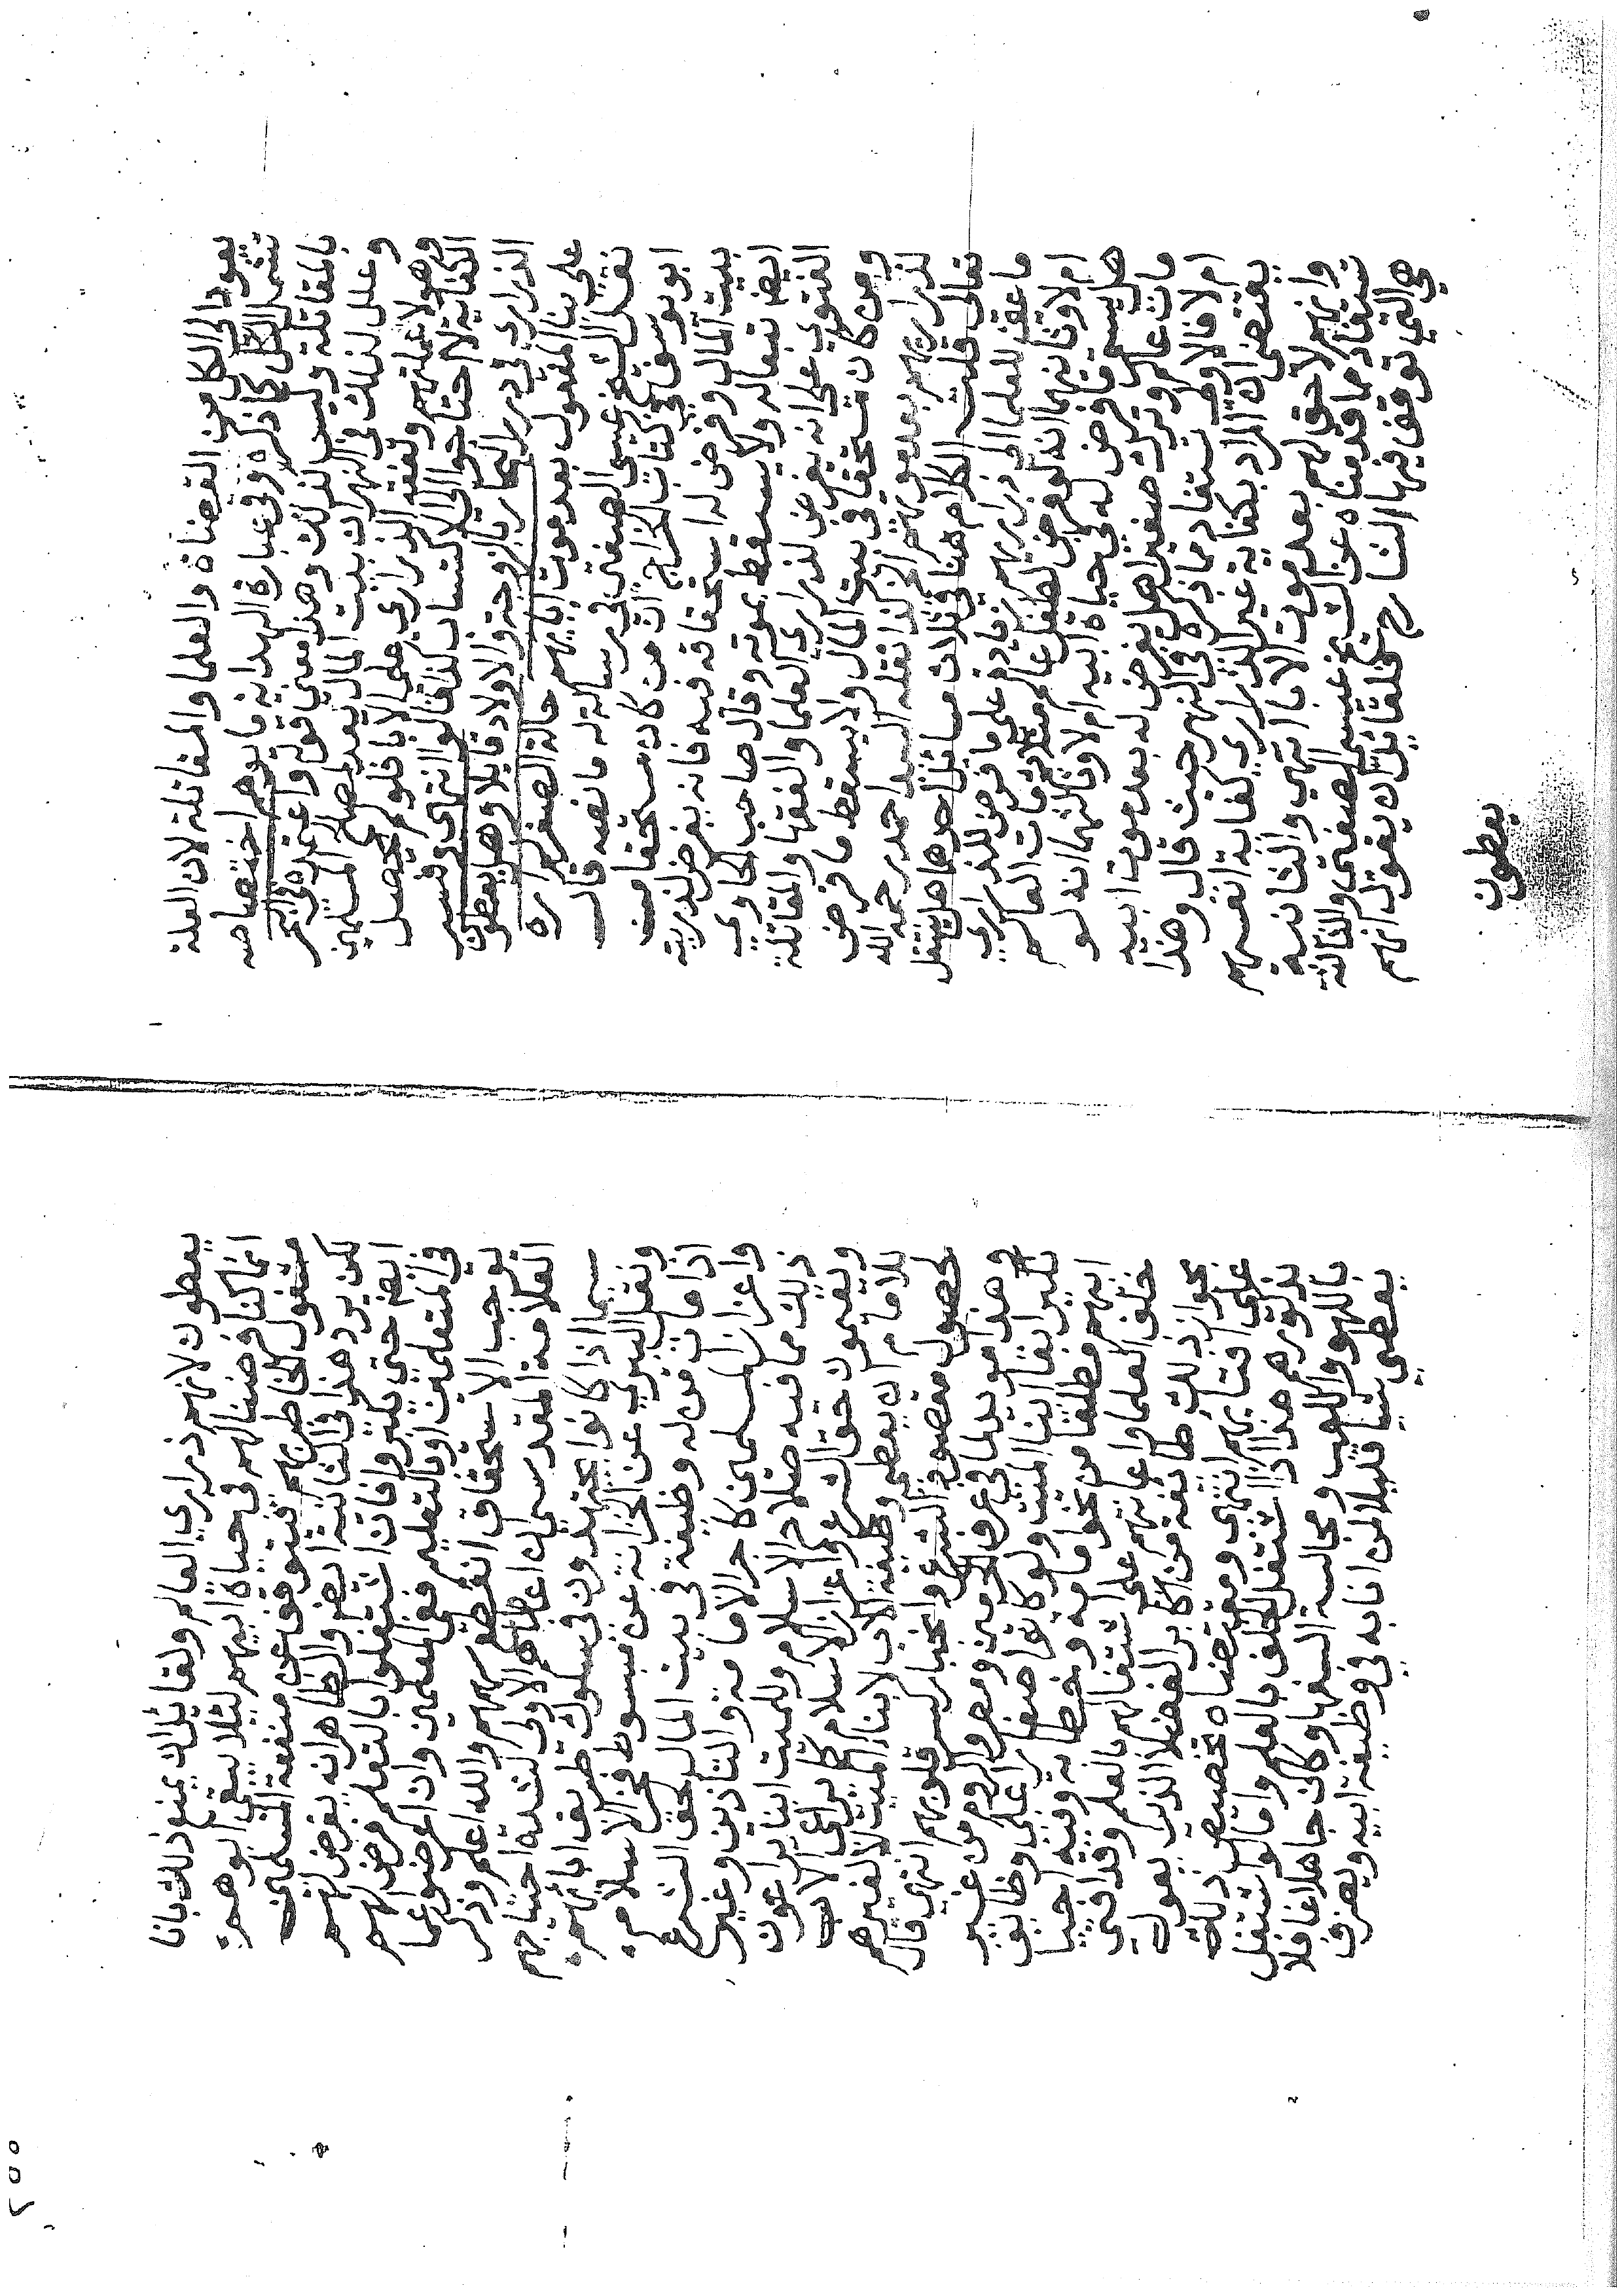 يعود الى الكل من القضاة والعلما والمقاتلة لان العلة
تشمل الكل كما ذكره وفي عبارة الهداية ما يوهم اختصاصه
بالمقاتلة وليس كذلك وهذا معنى قوله واعترض في البحر
وعلل لذلك في النهر ان بيت المال معد لمصالح المسلمين
وهولا عملتهم ونفقة الذراري على الابا فلو لم يحصل
الكفاية لاحتاجوا الى الاكتساب كذا قالوا انتهى وفسر
الذراري في درر البحار بالزوجة والاولاد قايلا وهل يعطون
على بنا المفعول بعد موت ابايهم حالة الصغر لم اره
نقل الشيخ عيسى الصفتي في رسالة له ما نصه قال
ابو يوسف في كتاب الخراج ان من كان مستحقا في
بيت المال وفرض له استحقاقه فيه فانه يفرض لذريته
ايضا تبعا له ولا يسقط بموته وقال صاحب الحاوي
الفتوى على انه يفرض لذراري العلما والفقها والمقاتلة
ومن كان مستحقا في بيت المال ولا يسقط ما فرض
لذراريهم بعد موتهم انتهى كذا نقله السيد احمد رحمه الله
تعالى قلت الكلام هنا في ثلاث مسائل احدها هل ينتقل
ما للعلما الى ذراريهم زيادة على ما فرض للذراري
ام لا وثانيها انه لو فرض لطفل عالم مثلا ثم مات العالم
هل يستمر ما فرض له في حياة ابيه ام لا وثالثها انه لو
مات عالم وترك صغيرا هل يفرض له بعد موت ابيه
ام لا فالاولى تستفاد مما ذكره في النهر حيث قال وهذا
يقتضي ان المراد بكفاية الذراري كفاية انفسهم
وانهم لا حق لهم بعد موت الابا انتهى والثانية
تستفاد مما قدمناه عن الشيخ عيسى الصفتي والثالثة
هي التي توقف فيها الشارح فلقائل ان يقول انهم
يعطون
يعطون لانهم ذراري العالم ولقائل ان يمنع ذلك بانا
انما كنا فرضنا لهم في حياة ابيهم لئلا يبقى ابوهم
مشغول الخاطر بهم فيتوقف عن منفعة المسلمين
لكن يرد هذا في الثانية ايضا والظاهر انه يفرض لهم
ايضا حتى يكبروا فان اشتغلوا بالتعلم فرض لهم
في المتعلمين او بالتعليم ففي المعلمين وان اعرضوا عما
يوجب الاستحقاق انقطع سهمهم والله اعلم وذكر
العلامة المقدسي ان اعطاهم الاولى لشدة احتياجهم
سيما اذا كانوا يجتهدون في سلوك طريق ابائهم
ونقل البيري عن الخزانة عن مبسوط فخر الاسلام
اذا مات من له وظيفة في بيت المال لحق الشرع
واعزاز الاسلام كاجر الامامة والتاذين وغير
ذلك مما فيه صلاح الاسلام وللميت ابنا يراعون
ويقيمون حق الشرع واعزاز الاسلام كما يراعي الاب
للامام ان يعطي وظيفة الاب لابناء الميت لا لغيرهم
لحصول مقصود الشرع وانجبار كسر قلوبهم انتهى قال
وهذا مويد لما في عرف الحرمين ومصر والروم من غير
نكير ابقا ابنا الميت ولو كانوا صغارا على وظايف
ابيهم مطلقا من امامة وخطابة وفيه احيا
خلف العلما واعانتهم على اشتغالهم بالعلم وقد افتى
بجواز ذلك طائفة من اكابر الفضلا الذين يعول
على افتايهم انتهى ومقتضاه تخصيص ذلك
بذكورهم هذا اذا اشتغل الخلف بالعلم واما لو اشتغل
باللهو واللعب ومجالسة السفها وكان جاهلا غافلا
فيعطى شيا قليلا لمن انابه في وظيفة ابيه ويصرف
٢٥٥